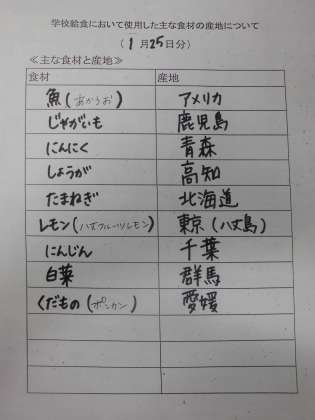 学校給食において使用した主な食材の産地について
（1月25日分）
≪主な食材と産地≫
食材 産地
魚(あかうお) アメリカ
じゃがいも 鹿児島
にんにく 青森
しょうが 高知
たまねぎ 北海道
レモン(ハチフルーツレモン) 東京(八丈島)
にんじん 千葉
白菜 群馬
くだもの(ポンカン) 愛媛